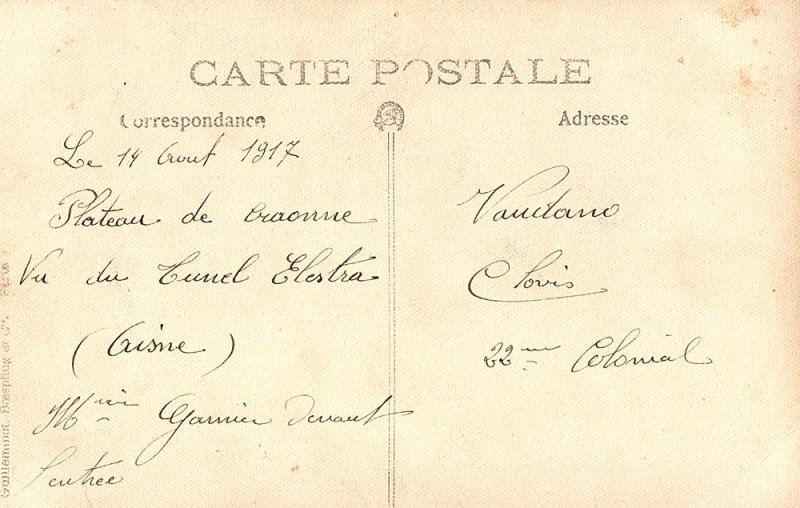 CARTE POSTALE
Correspondance
Adresse
Le 14 Aout 1917
Plateau de Craonne
Vu du Tunel Elestra
(Aisne)
Garnier devant
l'entree
Vandano
Clovis
22ème Colonial
Guilleminot, Bœspflug et Cie. Paris